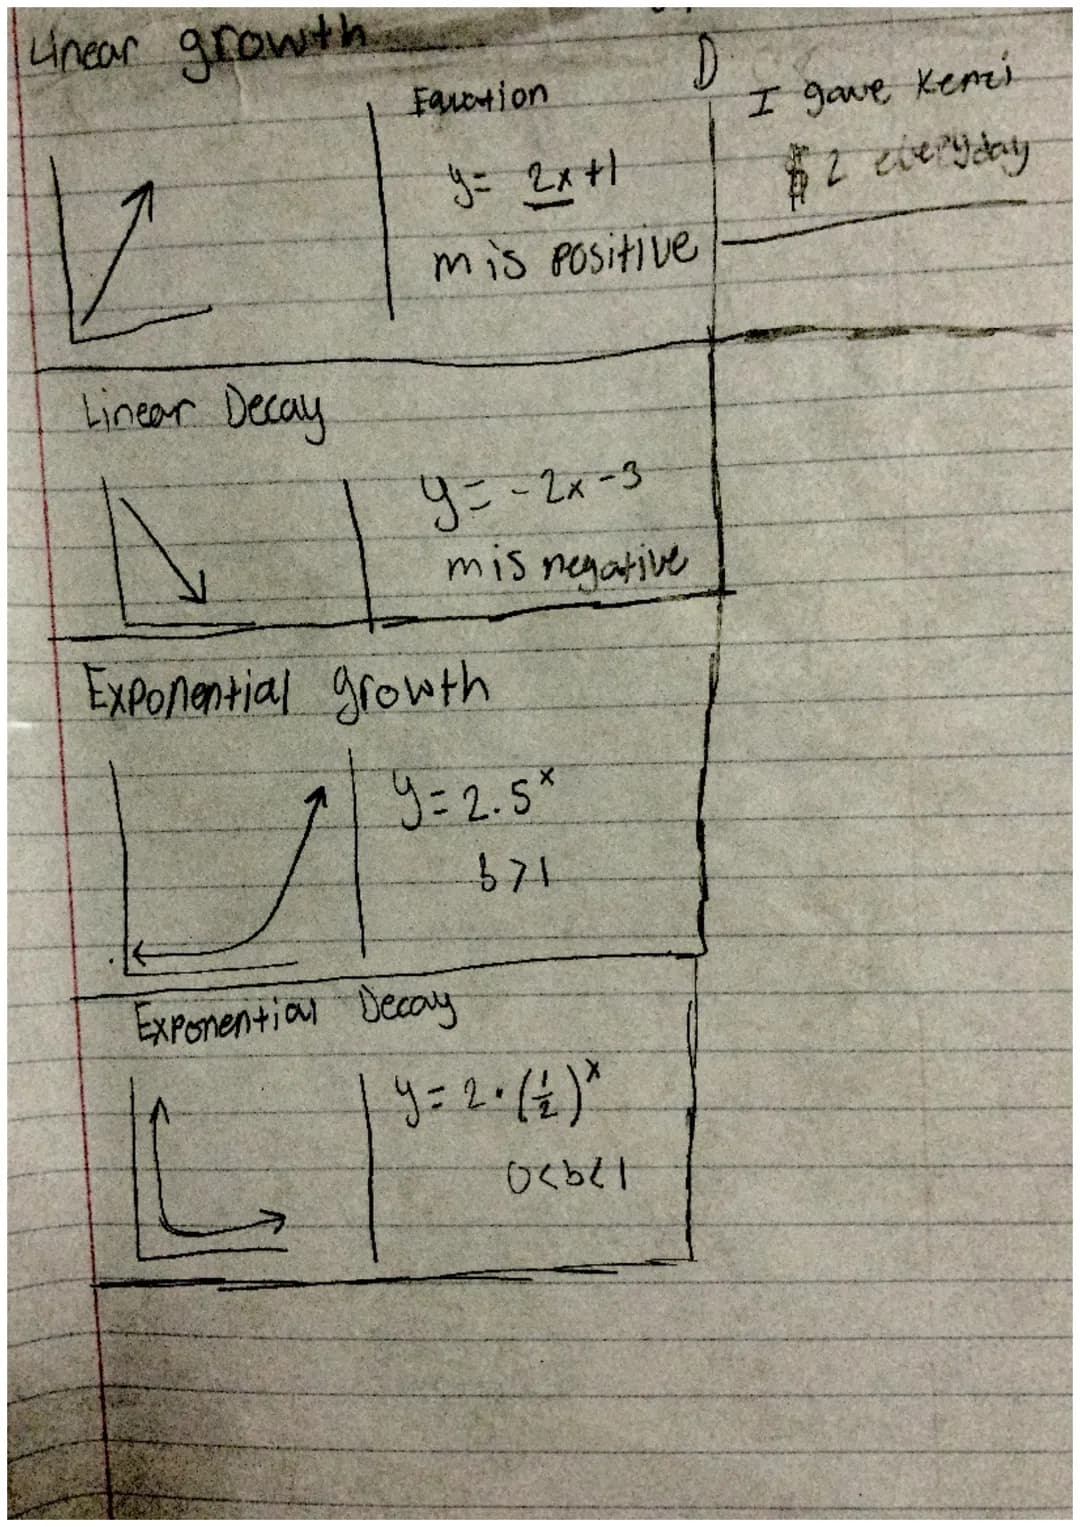 Linear growth
Equation
y= 2x+1
m is positive
D
I gave Kenzi
$2 everyday
Linear Decay
y=-2x-3
m is negative
Exponential growth
y=2.5ˣ
b>1
Exponential Decay
y=2·(½)ˣ
0<b<1